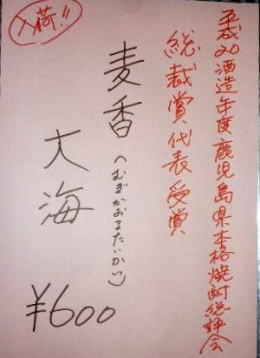 入荷!!
平成20酒造年度鹿児島県本格焼酎総評会
総裁賞代表受賞
麦香(むぎかおるたいかい)
大海
¥600